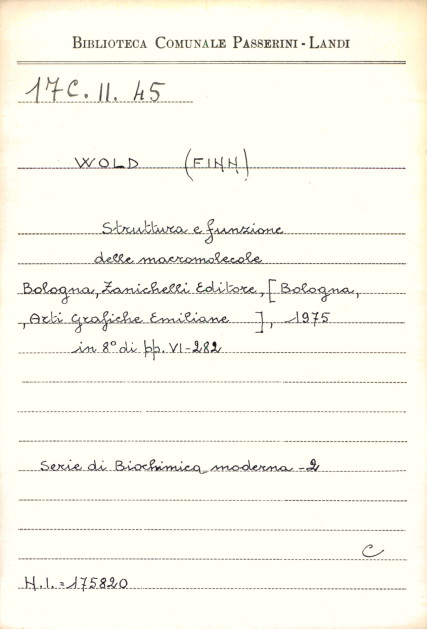 BIBLIOTECA COMUNALE PASSERINI - LANDI
17C. II. 45
WOLD (FINN)
Struttura e funzione
delle macromolecole
Bologna, Zanichelli Editore, [Bologna,
, Arti Grafiche Emiliane ], 1975
in 8° di pp. VI-282
Serie di Biochimica moderna - 2
C
N.I. = 175820